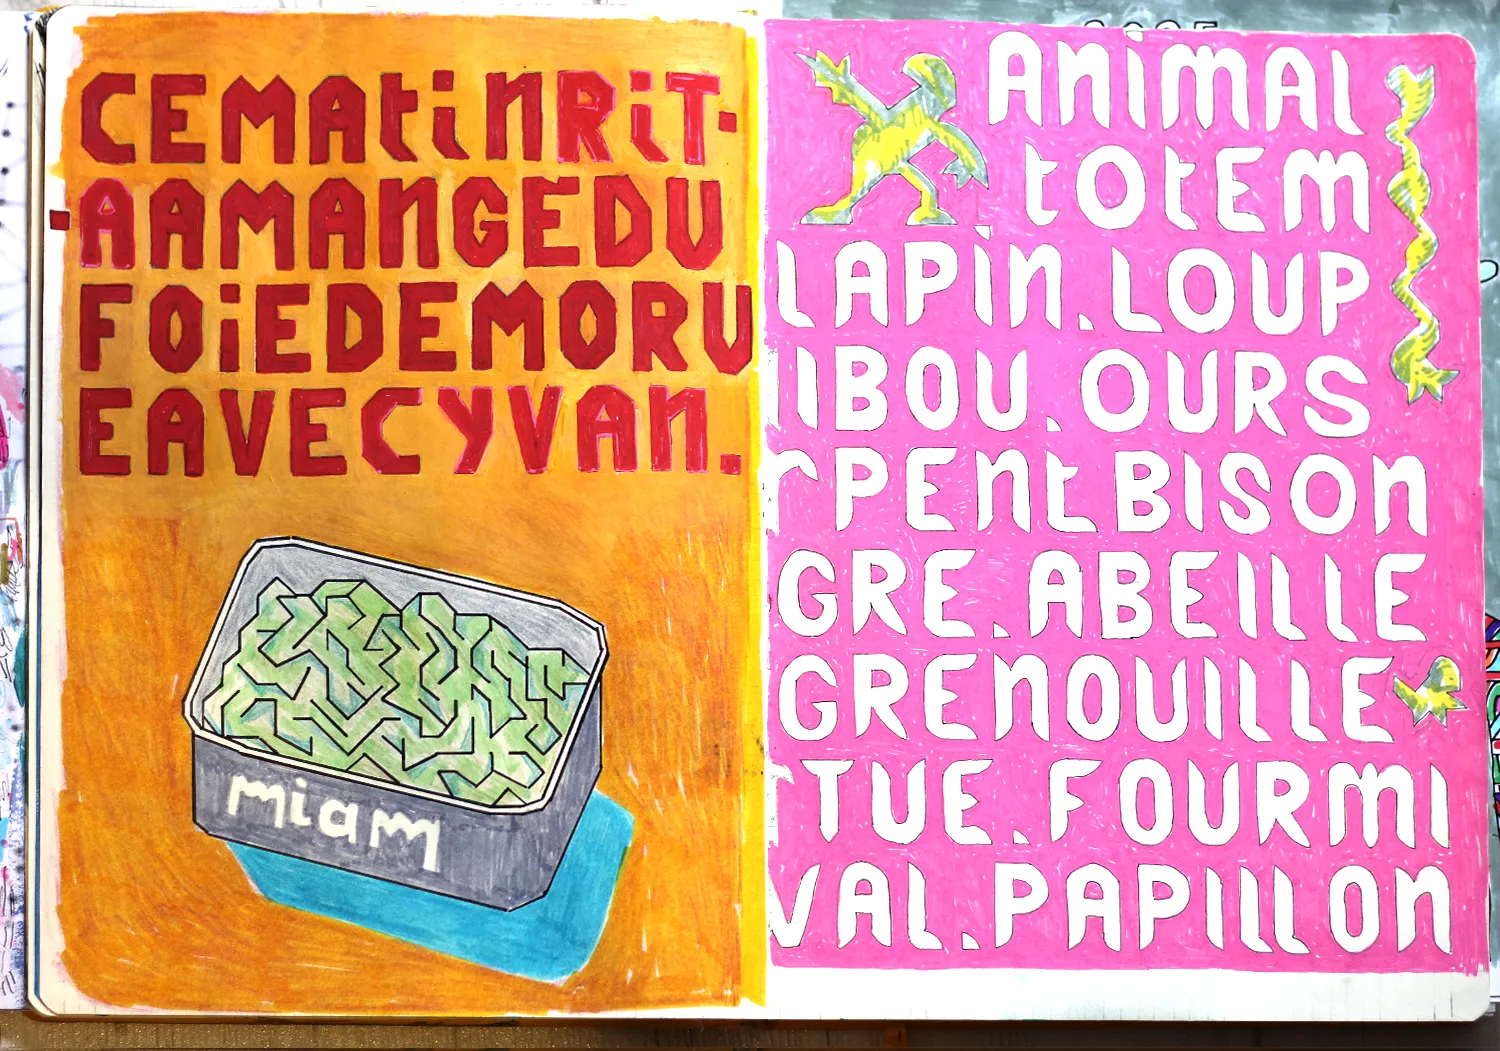 CEMAtinRiT-
AAMAnGEDU
FOiEDEMORU
EAVECYVAn.
miam
AniMAL
tOtEM
LAPin.LOUP
IBOU.OURS
PEntBISOn
GRE.ABEILLE
GREnOUILLE
TUE.FOURMI
VAL.PAPILLOn